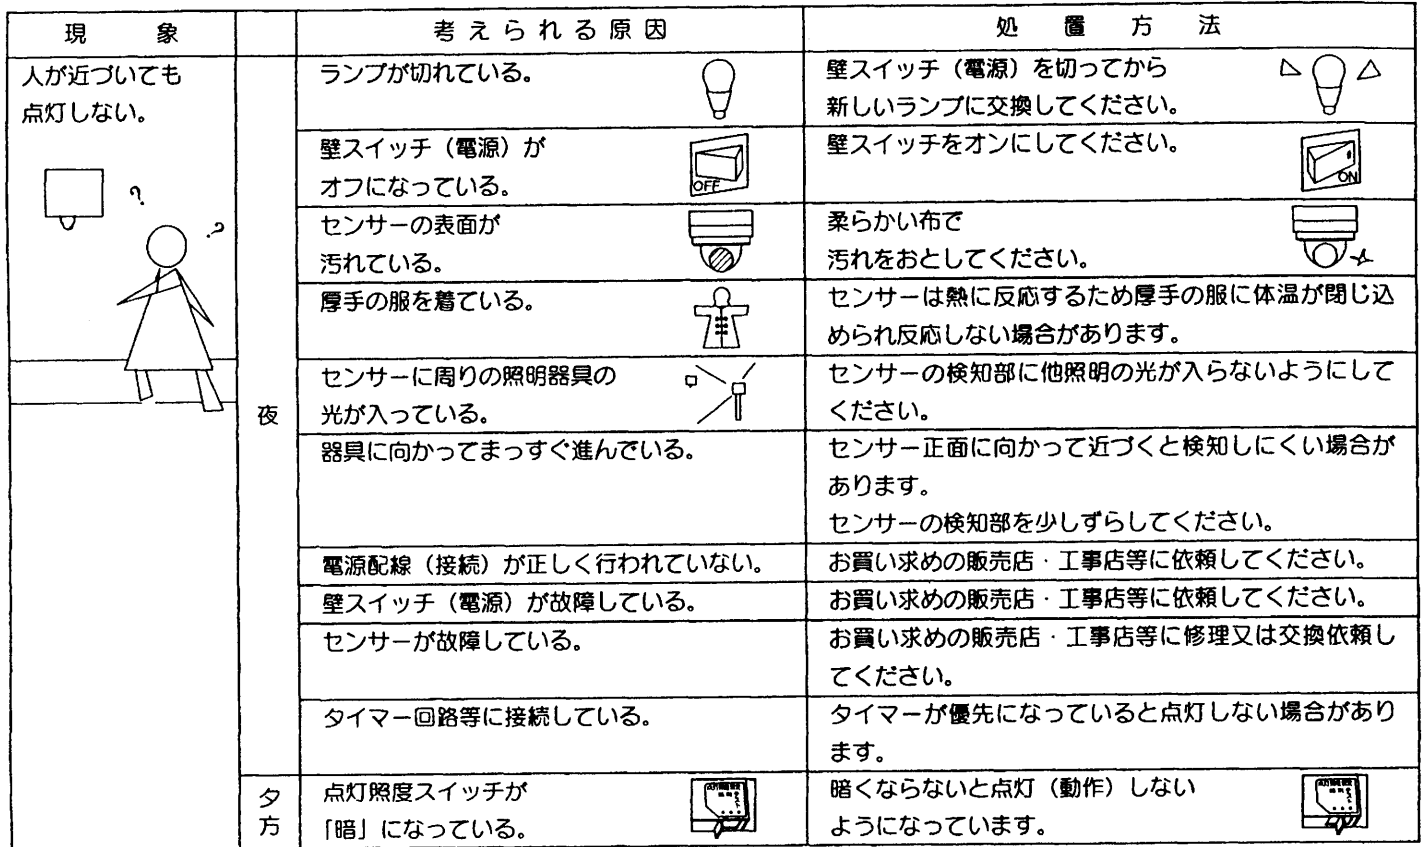 現象 考えられる原因 処置方法
人が近づいても
点灯しない。
夜
ランプが切れている。
壁スイッチ（電源）を切ってから
新しいランプに交換してください。
壁スイッチ（電源）が
オフになっている。
OFF
壁スイッチをオンにしてください。
ON
センサーの表面が
汚れている。
柔らかい布で
汚れをおとしてください。
厚手の服を着ている。
センサーは熱に反応するため厚手の服に体温が閉じ込
められ反応しない場合があります。
センサーに周りの照明器具の
光が入っている。
センサーの検知部に他照明の光が入らないようにして
ください。
器具に向かってまっすぐ進んでいる。
センサー正面に向かって近づくと検知しにくい場合が
あります。
センサーの検知部を少しずらしてください。
電源配線（接続）が正しく行われていない。
お買い求めの販売店・工事店等に依頼してください。
壁スイッチ（電源）が故障している。
お買い求めの販売店・工事店等に依頼してください。
センサーが故障している。
お買い求めの販売店・工事店等に修理又は交換依頼し
てください。
タイマー回路等に接続している。
タイマーが優先になっていると点灯しない場合があり
ます。
夕方
点灯照度スイッチが
「暗」になっている。
暗くならないと点灯（動作）しない
ようになっています。